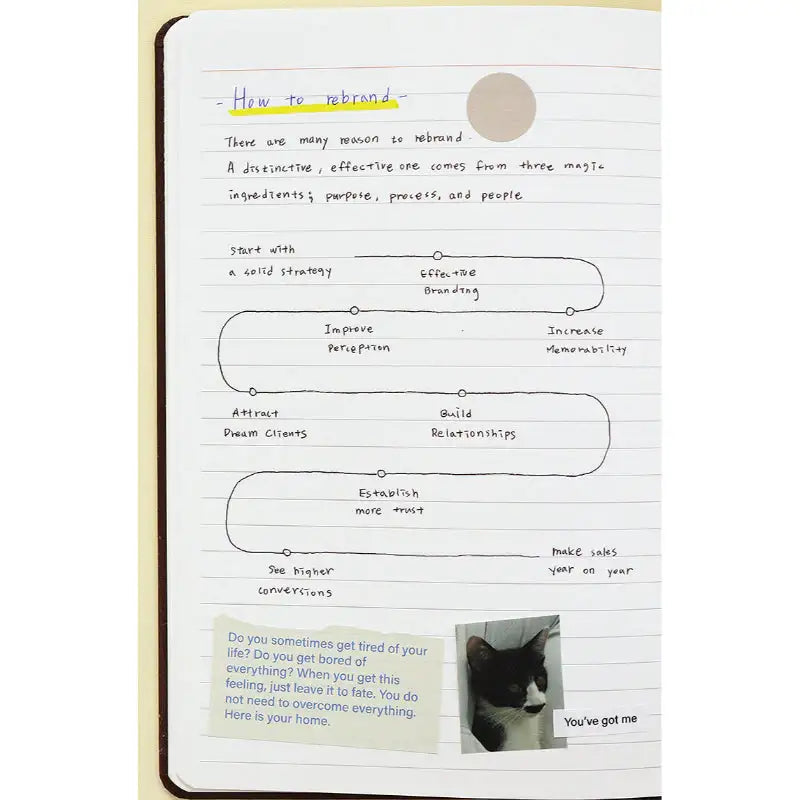 - How to rebrand -
There are many reason to rebrand.
A distinctive, effective one comes from three magic
ingredients; purpose, process, and people
Start with
a solid strategy
Effective
Branding
Increase
Memorability
Improve
Perception
Attract
Dream Clients
Build
Relationships
Establish
more trust
See higher
conversions
make sales
year on year
Do you sometimes get tired of your
life? Do you get bored of
everything? When you get this
feeling, just leave it to fate. You do
not need to overcome everything.
Here is your home.
You've got me